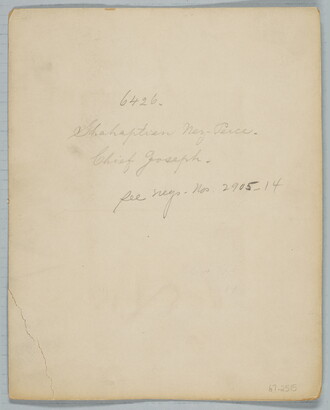 6426.
Shahaptian Nez-Perce.
Chief Joseph.
see negs. Nos. 2905-14